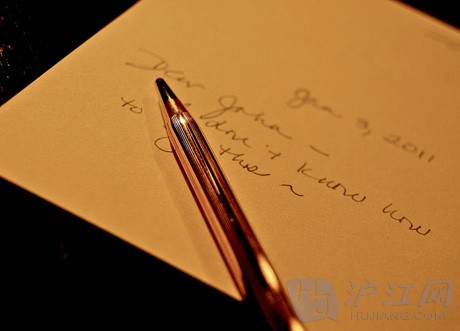 Jan 3, 2011
Dear John –
I don't know how
to this ~
沪江网
HUJIANG.COM